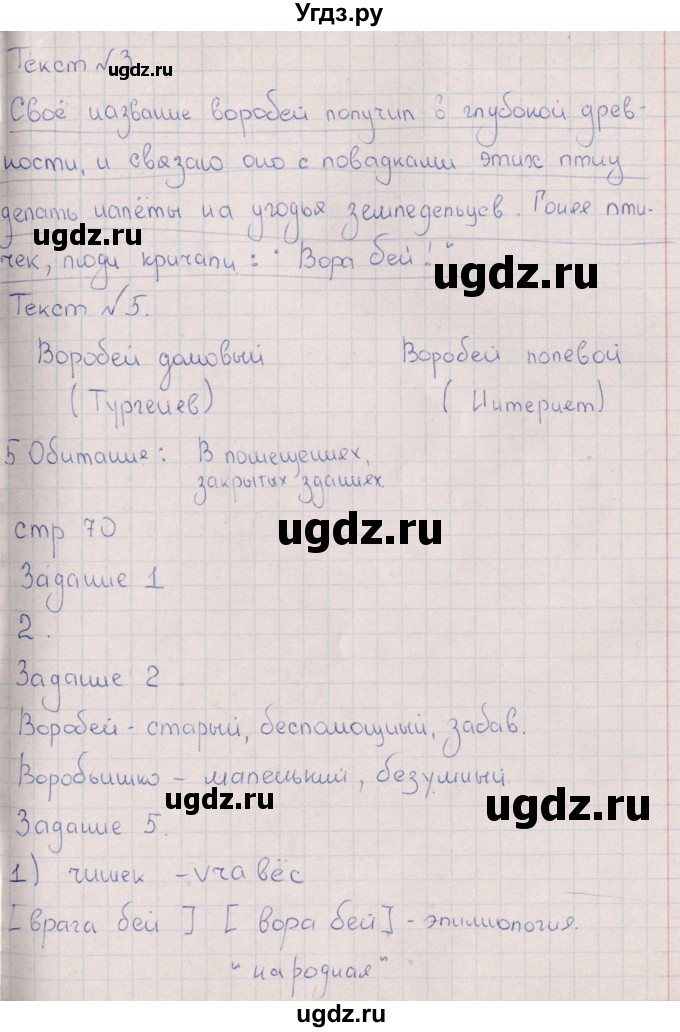 Угдз.ру
Текст №3
ugdz.ru
Своё название воробей получил в глубокой древ-
ности, и связано оно с повадками этих птиц
делать налёты на угодья земледельцев. Гоняя пти-
ugdz.ru
чек, люди кричали: "Вора бей!"
ugdz.ru
Текст №5.
Воробей домовый Воробей полевой
(Тургенев) (Интернет)
5 Обитание: В помещениях,
закрытых зданиях.
ugdz.ru
стр 70
Задание 1
2.
Задание 2
Воробей - старый, беспомощный, забав.
Воробьишко - маленький, безумный.
ugdz.ru
ugdz.ru
Задание 5.
1) чишек - учавёс
[врага бей] [вора бей] - эпилиология.
"народная"
ugdz.ru
Угдз.ру